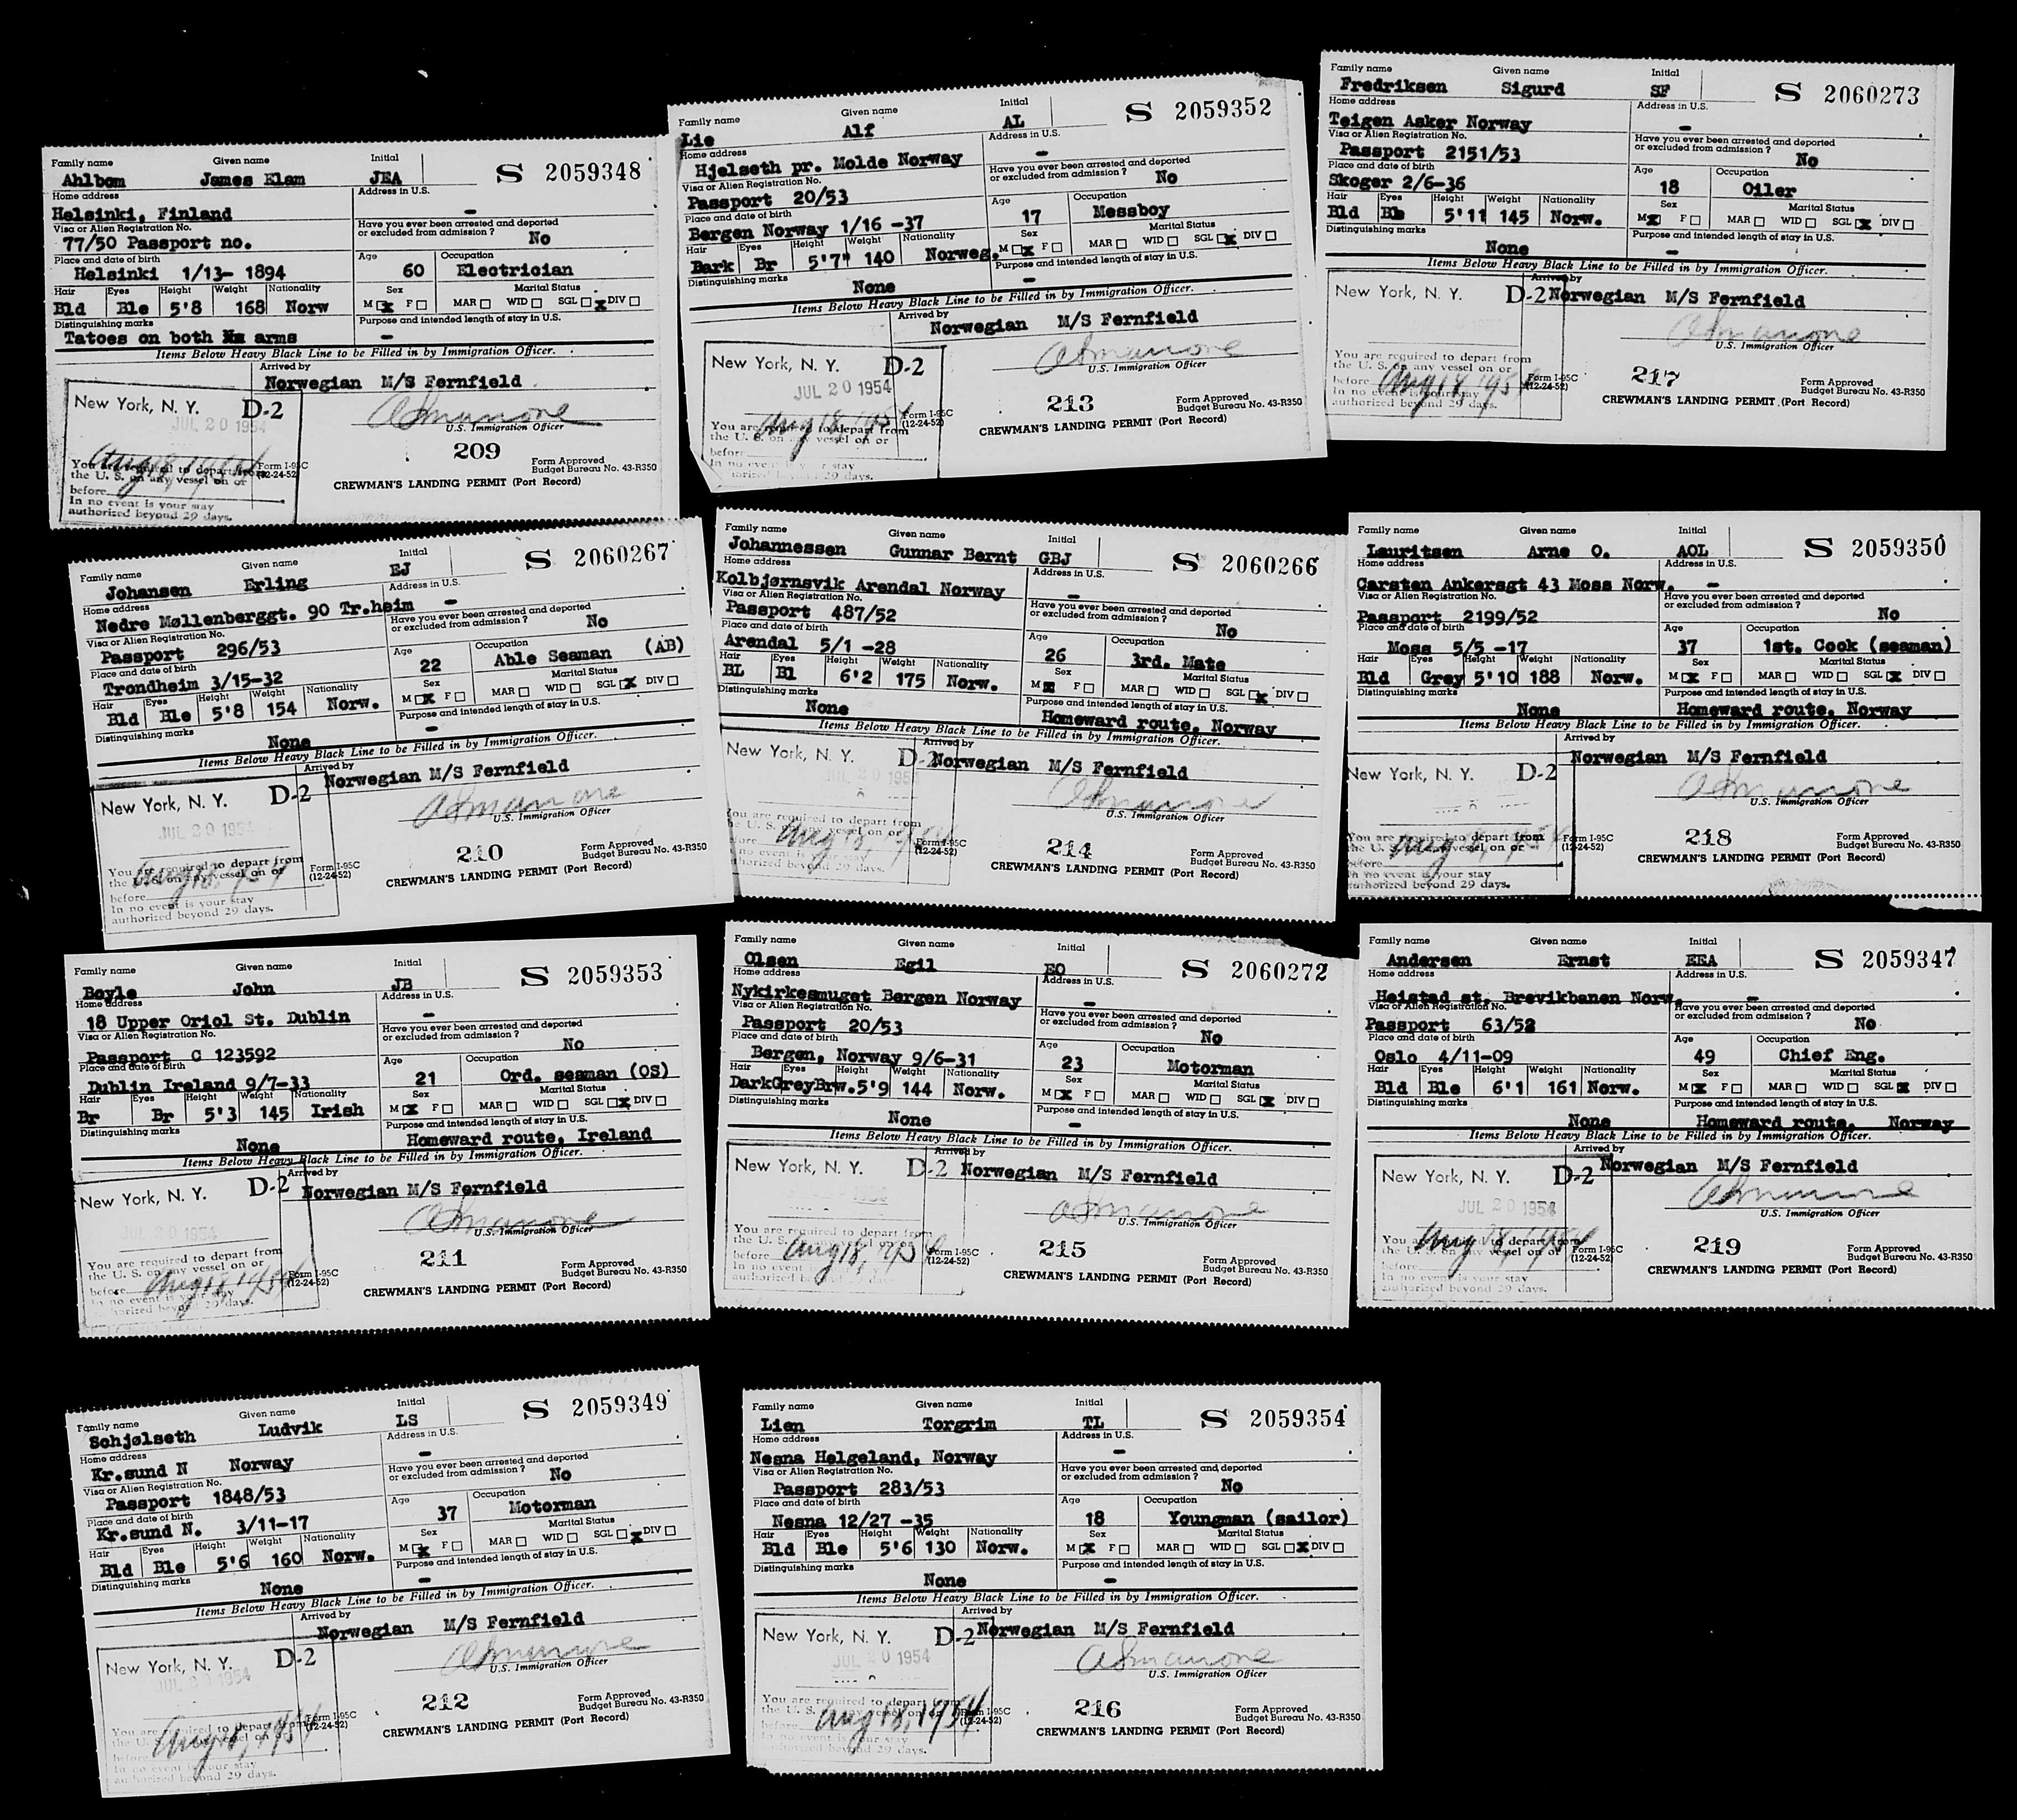 Family name Given name Initial
Ahlbom James Elam JEA S 2059348
Home address Address in U.S.
Helsinki, Finland -
Visa or Alien Registration No. Have you ever been arrested and deported
or excluded from admission ?
77/50 Passport no. No
Place and date of birth Age Occupation
Helsinki 1/13- 1894 60 Electrician
Hair Eyes Height Weight Nationality Sex Marital Status
Bld Ble 5'8 168 Norw M X F MAR WID SGL X DIV
Distinguishing marks Purpose and intended length of stay in U.S.
Tatoes on both arms -
Items Below Heavy Black Line to be Filled in by Immigration Officer.
Arrived by
Norwegian M/S Fernfield
New York, N. Y. D-2
JUL 20 1954
U.S. Immigration Officer
209
Aug 18, 1954
You are required to depart from
the U. S. on any vessel on or
before
In no event is your stay
authorized beyond 29 days.
Form I-95C
(12-24-52)
Form Approved
Budget Bureau No. 43-R350
CREWMAN'S LANDING PERMIT (Port Record)
Family name Given name Initial
Johansen Erling EJ S 2060267
Home address Address in U.S.
Nedre Møllenberggt. 90 Tr.heim -
Visa or Alien Registration No. Have you ever been arrested and deported
or excluded from admission ?
Passport 296/53 No
Place and date of birth Age Occupation
Trondheim 3/15-32 22 Able Seaman (AB)
Hair Eyes Height Weight Nationality Sex Marital Status
Bld Ble 5'8 154 Norw. M X F MAR WID SGL X DIV
Distinguishing marks Purpose and intended length of stay in U.S.
None -
Items Below Heavy Black Line to be Filled in by Immigration Officer.
Arrived by
Norwegian M/S Fernfield
New York, N. Y. D-2
JUL 20 1954
U.S. Immigration Officer
210
You are required to depart from
the U. S. on any vessel on or
Aug 18, 1954
before
In no event is your stay
authorized beyond 29 days.
Form I-95C
(12-24-52)
Form Approved
Budget Bureau No. 43-R350
CREWMAN'S LANDING PERMIT (Port Record)
Family name Given name Initial
Boyle John JB S 2059353
Home address Address in U.S.
18 Upper Oriol St. Dublin -
Visa or Alien Registration No. Have you ever been arrested and deported
or excluded from admission ?
Passport C 123592 No
Place and date of birth Age Occupation
Dublin Ireland 9/7-33 21 Ord. seaman (OS)
Hair Eyes Height Weight Nationality Sex Marital Status
Br Br 5'3 145 Irish M X F MAR WID SGL X DIV
Distinguishing marks Purpose and intended length of stay in U.S.
None Homeward route, Ireland
Items Below Heavy Black Line to be Filled in by Immigration Officer.
Arrived by
Norwegian M/S Fernfield
New York, N. Y. D-2
JUL 20 1954
U.S. Immigration Officer
211
You are required to depart from
the U. S. on any vessel on or
before Aug 18, 1954
In no event is your stay
authorized beyond 29 days.
Form I-95C
(12-24-52)
Form Approved
Budget Bureau No. 43-R350
CREWMAN'S LANDING PERMIT (Port Record)
Family name Given name Initial
Schjølseth Ludvik LS S 2059349
Home address Address in U.S.
Kr.sund N Norway -
Visa or Alien Registration No. Have you ever been arrested and deported
or excluded from admission ?
Passport 1848/53 No
Place and date of birth Age Occupation
Kr.sund N. 3/11-17 37 Motorman
Hair Eyes Height Weight Nationality Sex Marital Status
Bld Ble 5'6 160 Norw. M X F MAR WID SGL X DIV
Distinguishing marks Purpose and intended length of stay in U.S.
None -
Items Below Heavy Black Line to be Filled in by Immigration Officer.
Arrived by
Norwegian M/S Fernfield
New York, N. Y. D-2
JUL 20 1954
U.S. Immigration Officer
212
You are required to depart from
the U. S. on any vessel on or
Aug 18, 1954
before
In no event is your stay
authorized beyond 29 days.
Form I-95C
(12-24-52)
Form Approved
Budget Bureau No. 43-R350
CREWMAN'S LANDING PERMIT (Port Record)
Family name Given name Initial
Lie Alf AL S 2059352
Home address Address in U.S.
Hjelseth pr. Molde Norway -
Visa or Alien Registration No. Have you ever been arrested and deported
or excluded from admission ?
Passport 20/53 No
Place and date of birth Age Occupation
Bergen Norway 1/16 -37 17 Messboy
Hair Eyes Height Weight Nationality Sex Marital Status
Dark Br 5'7" 140 Norweg. M X F MAR WID SGL X DIV
Distinguishing marks Purpose and intended length of stay in U.S.
None -
Items Below Heavy Black Line to be Filled in by Immigration Officer.
Arrived by
Norwegian M/S Fernfield
New York, N. Y. D-2
JUL 20 1954
U.S. Immigration Officer
213
Aug 18, 1954
You are required to depart from
the U. S. on any vessel on or
before
In no event is your stay
authorized beyond 29 days.
Form I-95C
(12-24-52)
Form Approved
Budget Bureau No. 43-R350
CREWMAN'S LANDING PERMIT (Port Record)
Family name Given name Initial
Johannessen Gunnar Bernt GBJ S 2060266
Home address Address in U.S.
Kolbjørnsvik Arendal Norway -
Visa or Alien Registration No. Have you ever been arrested and deported
or excluded from admission ?
Passport 487/52 No
Place and date of birth Age Occupation
Arendal 5/1 -28 26 3rd. Mate
Hair Eyes Height Weight Nationality Sex Marital Status
BL Bl 6'2 175 Norw. M X F MAR WID SGL X DIV
Distinguishing marks Purpose and intended length of stay in U.S.
None Homeward route, Norway
Items Below Heavy Black Line to be Filled in by Immigration Officer.
Arrived by
Norwegian M/S Fernfield
New York, N. Y. D-2
JUL 20 1954
U.S. Immigration Officer
214
You are required to depart from
the U. S. on any vessel on or
Aug 18,
before
In no event is your stay
authorized beyond 29 days.
Form I-95C
(12-24-52)
Form Approved
Budget Bureau No. 43-R350
CREWMAN'S LANDING PERMIT (Port Record)
Family name Given name Initial
Olsen Egil EO S 2060272
Home address Address in U.S.
Nykirkesmuget Bergen Norway -
Visa or Alien Registration No. Have you ever been arrested and deported
or excluded from admission ?
Passport 20/53 No
Place and date of birth Age Occupation
Bergen, Norway 9/6-31 23 Motorman
Hair Eyes Height Weight Nationality Sex Marital Status
DarkGreyBrw. 5'9 144 Norw. M X F MAR WID SGL X DIV
Distinguishing marks Purpose and intended length of stay in U.S.
None -
Items Below Heavy Black Line to be Filled in by Immigration Officer.
Arrived by
Norwegian M/S Fernfield
New York, N. Y. D-2
1954
U.S. Immigration Officer
215
You are required to depart from
the U. S. on any vessel on or
before Aug 18, 1954
In no event
authorized beyond 29 days.
Form I-95C
(12-24-52)
Form Approved
Budget Bureau No. 43-R350
CREWMAN'S LANDING PERMIT (Port Record)
Family name Given name Initial
Lien Torgrim TL S 2059354
Home address Address in U.S.
Nesna Helgeland, Norway -
Visa or Alien Registration No. Have you ever been arrested and deported
or excluded from admission ?
Passport 283/53 No
Place and date of birth Age Occupation
Nesna 12/27 -35 18 Youngman (sailor)
Hair Eyes Height Weight Nationality Sex Marital Status
Bld Ble 5'6 130 Norw. M X F MAR WID SGL X DIV
Distinguishing marks Purpose and intended length of stay in U.S.
None -
Items Below Heavy Black Line to be Filled in by Immigration Officer.
Arrived by
Norwegian M/S Fernfield
New York, N. Y. D-2
JUL 20 1954
U.S. Immigration Officer
216
You are required to depart from
the U. S. on any vessel on or
before Aug 18, 1954
In no event is your stay
authorized beyond 29 days.
Form I-95C
(12-24-52)
Form Approved
Budget Bureau No. 43-R350
CREWMAN'S LANDING PERMIT (Port Record)
Family name Given name Initial
Fredriksen Sigurd SF S 2060273
Home address Address in U.S.
Teigen Asker Norway -
Visa or Alien Registration No. Have you ever been arrested and deported
or excluded from admission ?
Passport 2151/53 No
Place and date of birth Age Occupation
Skoger 2/6-36 18 Oiler
Hair Eyes Height Weight Nationality Sex Marital Status
Bld 5'11 145 Norw. M X F MAR WID SGL X DIV
Distinguishing marks Purpose and intended length of stay in U.S.
None -
Items Below Heavy Black Line to be Filled in by Immigration Officer.
Arrived by
Norwegian M/S Fernfield
New York, N. Y. D-2
1954
U.S. Immigration Officer
217
You are required to depart from
the U. S. on any vessel on or
before Aug 18, 1954
In no event is your stay
authorized beyond 29 days.
Form I-95C
(12-24-52)
Form Approved
Budget Bureau No. 43-R350
CREWMAN'S LANDING PERMIT (Port Record)
Family name Given name Initial
Lauritsen Arne O. AOL S 2059350
Home address Address in U.S.
Carsten Ankersgt 43 Moss Norw. -
Visa or Alien Registration No. Have you ever been arrested and deported
or excluded from admission ?
Passport 2199/52 No
Place and date of birth Age Occupation
Moss 5/5 -17 37 1st. Cook (seaman)
Hair Eyes Height Weight Nationality Sex Marital Status
Bld Grey 5'10 188 Norw. M X F MAR WID SGL X DIV
Distinguishing marks Purpose and intended length of stay in U.S.
None Homeward route, Norway
Items Below Heavy Black Line to be Filled in by Immigration Officer.
Arrived by
Norwegian M/S Fernfield
New York, N. Y. D-2
U.S. Immigration Officer
218
You are required to depart from
the U. S. on any vessel on or
Aug
before
In no event is your stay
authorized beyond 29 days.
Form I-95C
(12-24-52)
Form Approved
Budget Bureau No. 43-R350
CREWMAN'S LANDING PERMIT (Port Record)
Family name Given name Initial
Andersen Ernst EEA S 2059347
Home address Address in U.S.
Heistad st. Brevikbanen Norw. -
Visa or Alien Registration No. Have you ever been arrested and deported
or excluded from admission ?
Passport 63/52 No
Place and date of birth Age Occupation
Oslo 4/11-09 49 Chief Eng.
Hair Eyes Height Weight Nationality Sex Marital Status
Bld Ble 6'1 161 Norw. M X F MAR WID SGL X DIV
Distinguishing marks Purpose and intended length of stay in U.S.
None Homeward route, Norway
Items Below Heavy Black Line to be Filled in by Immigration Officer.
Arrived by
Norwegian M/S Fernfield
New York, N. Y. D-2
JUL 20 1954
U.S. Immigration Officer
219
You are required to depart from
the U. S. on any vessel on or
Aug 18, 1954
before
In no event is your stay
authorized beyond 29 days.
Form I-95C
(12-24-52)
Form Approved
Budget Bureau No. 43-R350
CREWMAN'S LANDING PERMIT (Port Record)